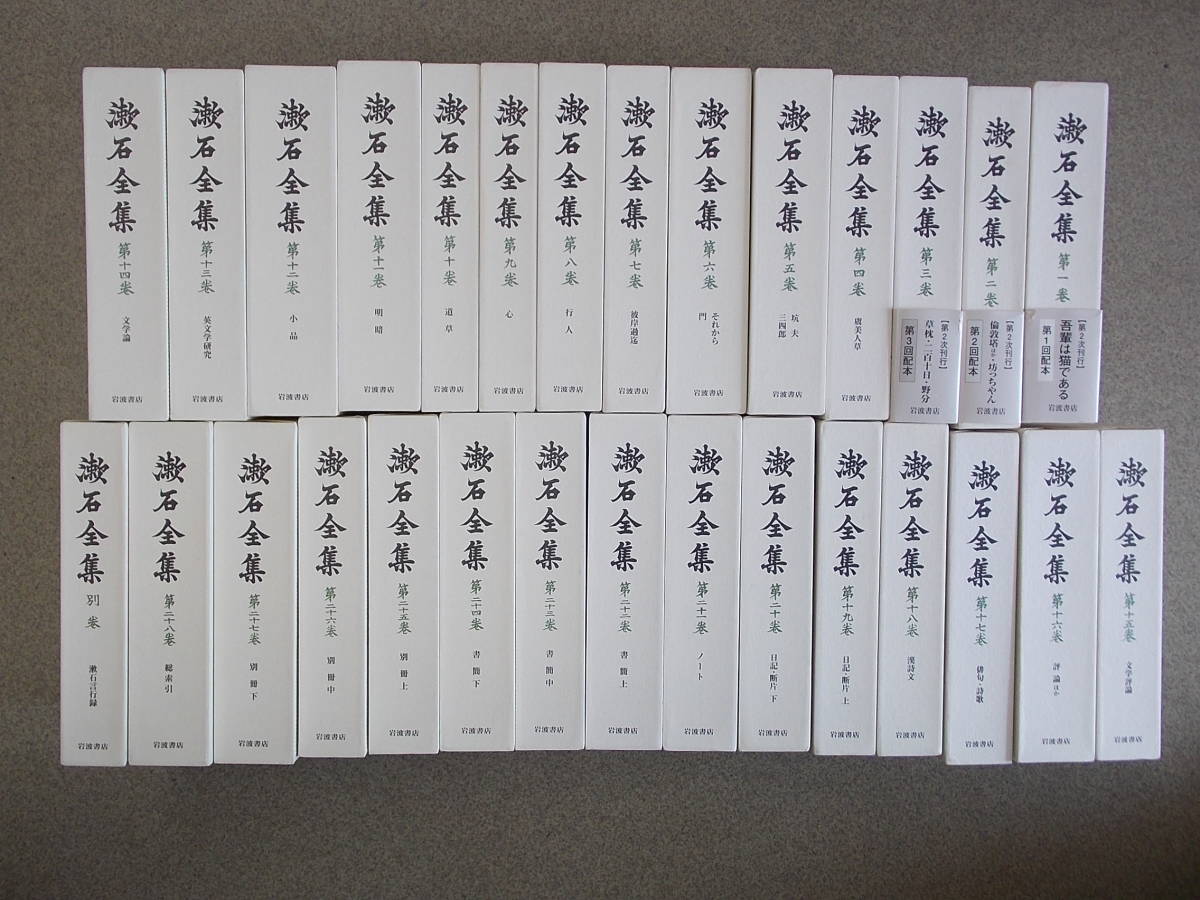 漱石全集 第一巻
【第2次刊行】
吾輩は猫である
第1回配本
岩波書店
漱石全集 第二巻
【第2次刊行】
倫敦塔ほか・坊っちやん
第2回配本
岩波書店
漱石全集 第三巻
【第2次刊行】
草枕・二百十日・野分
第3回配本
岩波書店
漱石全集 第四巻 虞美人草 岩波書店
漱石全集 第五巻 坑夫
三四郎
岩波書店
漱石全集 第六巻 それから
門
岩波書店
漱石全集 第七巻 彼岸過迄 岩波書店
漱石全集 第八巻 行人 岩波書店
漱石全集 第九巻 心 岩波書店
漱石全集 第十巻 道草 岩波書店
漱石全集 第十一巻 明暗 岩波書店
漱石全集 第十二巻 小品 岩波書店
漱石全集 第十三巻 英文学研究 岩波書店
漱石全集 第十四巻 文学論 岩波書店
漱石全集 第十五巻 文学評論 岩波書店
漱石全集 第十六巻 評論ほか 岩波書店
漱石全集 第十七巻 俳句・詩歌 岩波書店
漱石全集 第十八巻 漢詩文 岩波書店
漱石全集 第十九巻 日記・断片 上 岩波書店
漱石全集 第二十巻 日記・断片 下 岩波書店
漱石全集 第二十一巻 ノート 岩波書店
漱石全集 第二十二巻 書簡 上 岩波書店
漱石全集 第二十三巻 書簡 中 岩波書店
漱石全集 第二十四巻 書簡 下 岩波書店
漱石全集 第二十五巻 別冊 上 岩波書店
漱石全集 第二十六巻 別冊 中 岩波書店
漱石全集 第二十七巻 別冊 下 岩波書店
漱石全集 第二十八巻 総索引 岩波書店
漱石全集 別巻 漱石言行録 岩波書店